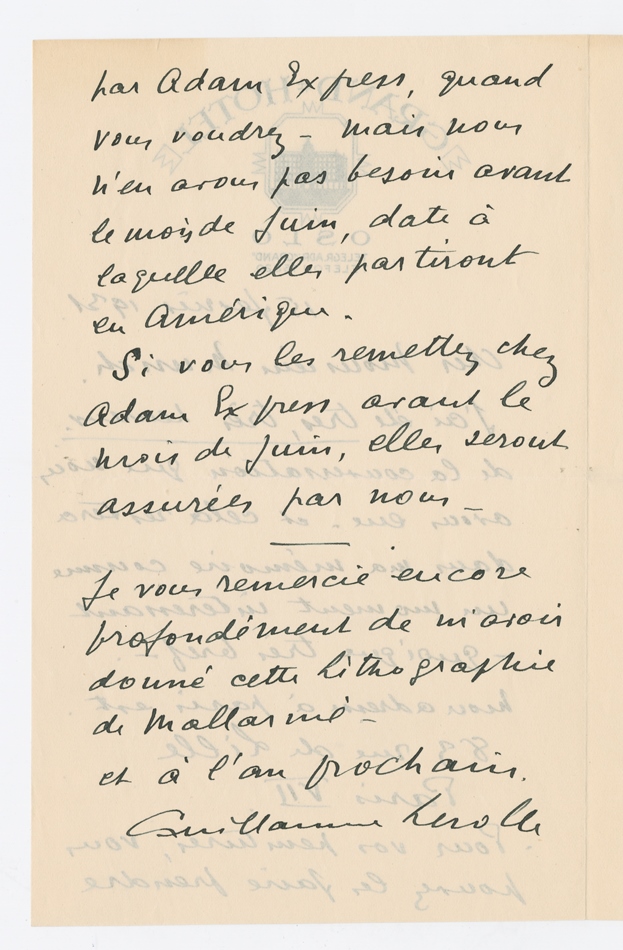 par Adam Express, quand
vous voudrez - mais nous
n'en avons pas besoin avant
le mois de Juin, date à
laquelle elles partiront
en Amérique.
Si vous les remettez chez
Adam Express avant le
mois de Juin, elles seront
assurées par nous -
Je vous remercie encore
profondément de m'avoir
donné cette Lithographie
de Mallarmé -
et à l'an prochain.
Guillaume Lerolle